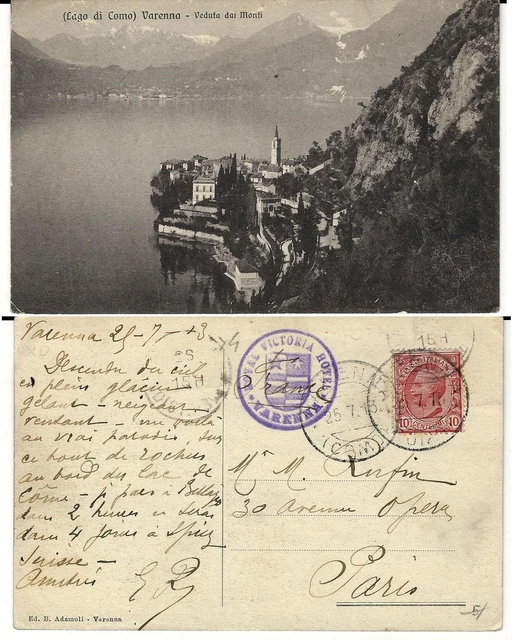 (Lago di Como) Varenna - Veduta dai Monti
Varenna 25-7-
Descendre du ciel
en pleins glaciers
gelant - neigeant
ventant - me voilà
au vrai paradis, sur
ce haut de rochers
au bord du lac de
Côme - je pars à
dans 2 heures et serai
dans 4 jours à Spiez
Suisse -
Amitiés
ROYAL VICTORIA HOTEL
VARENNA
France
15H
25.7.13
(COMO)
15H
10 CENTESIMI 10
Mr M. Rufin
30 avenue Opera
Paris
Ed. B. Adamoli - Varenna